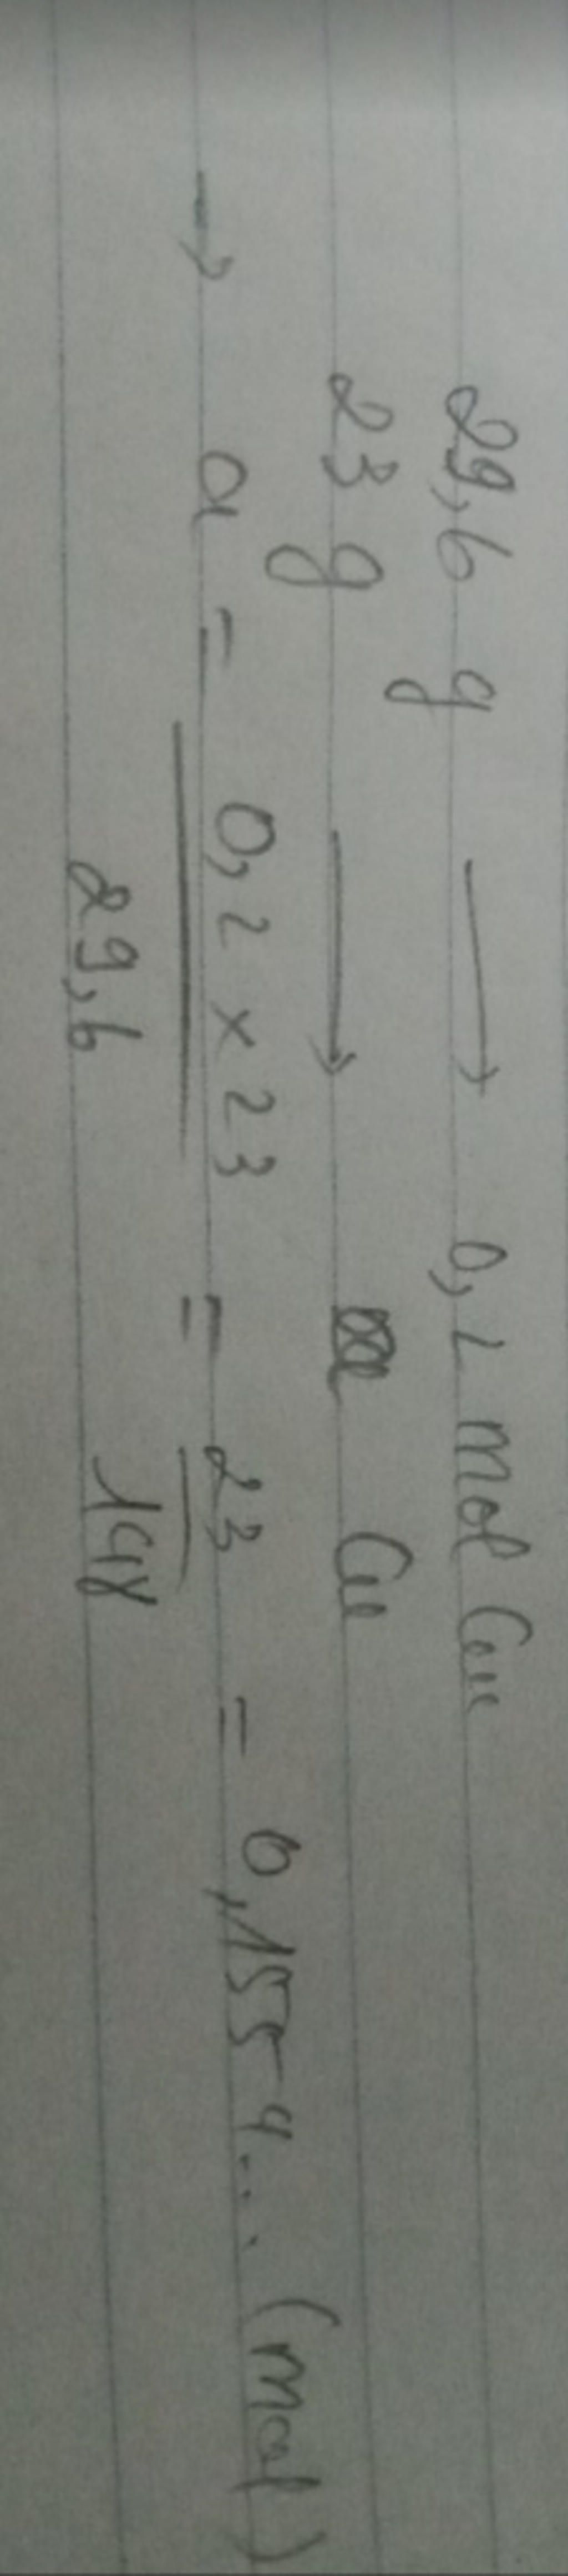 29,6 g → 0,2 mol Cu
23 g → Cu
→ a = 0,2 × 23 / 29,6 = 23 / 148 = 0,1554... (mol)